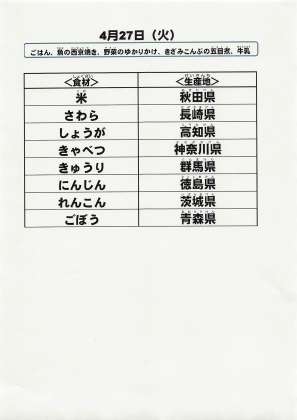 4月27日（火）
ごはん、魚の西京焼き、野菜のゆかりかけ、きざみこんぶの五目煮、牛乳
＜食材＞ ＜生産地＞
米 秋田県
さわら 長崎県
しょうが 高知県
きゃべつ 神奈川県
きゅうり 群馬県
にんじん 徳島県
れんこん 茨城県
ごぼう 青森県